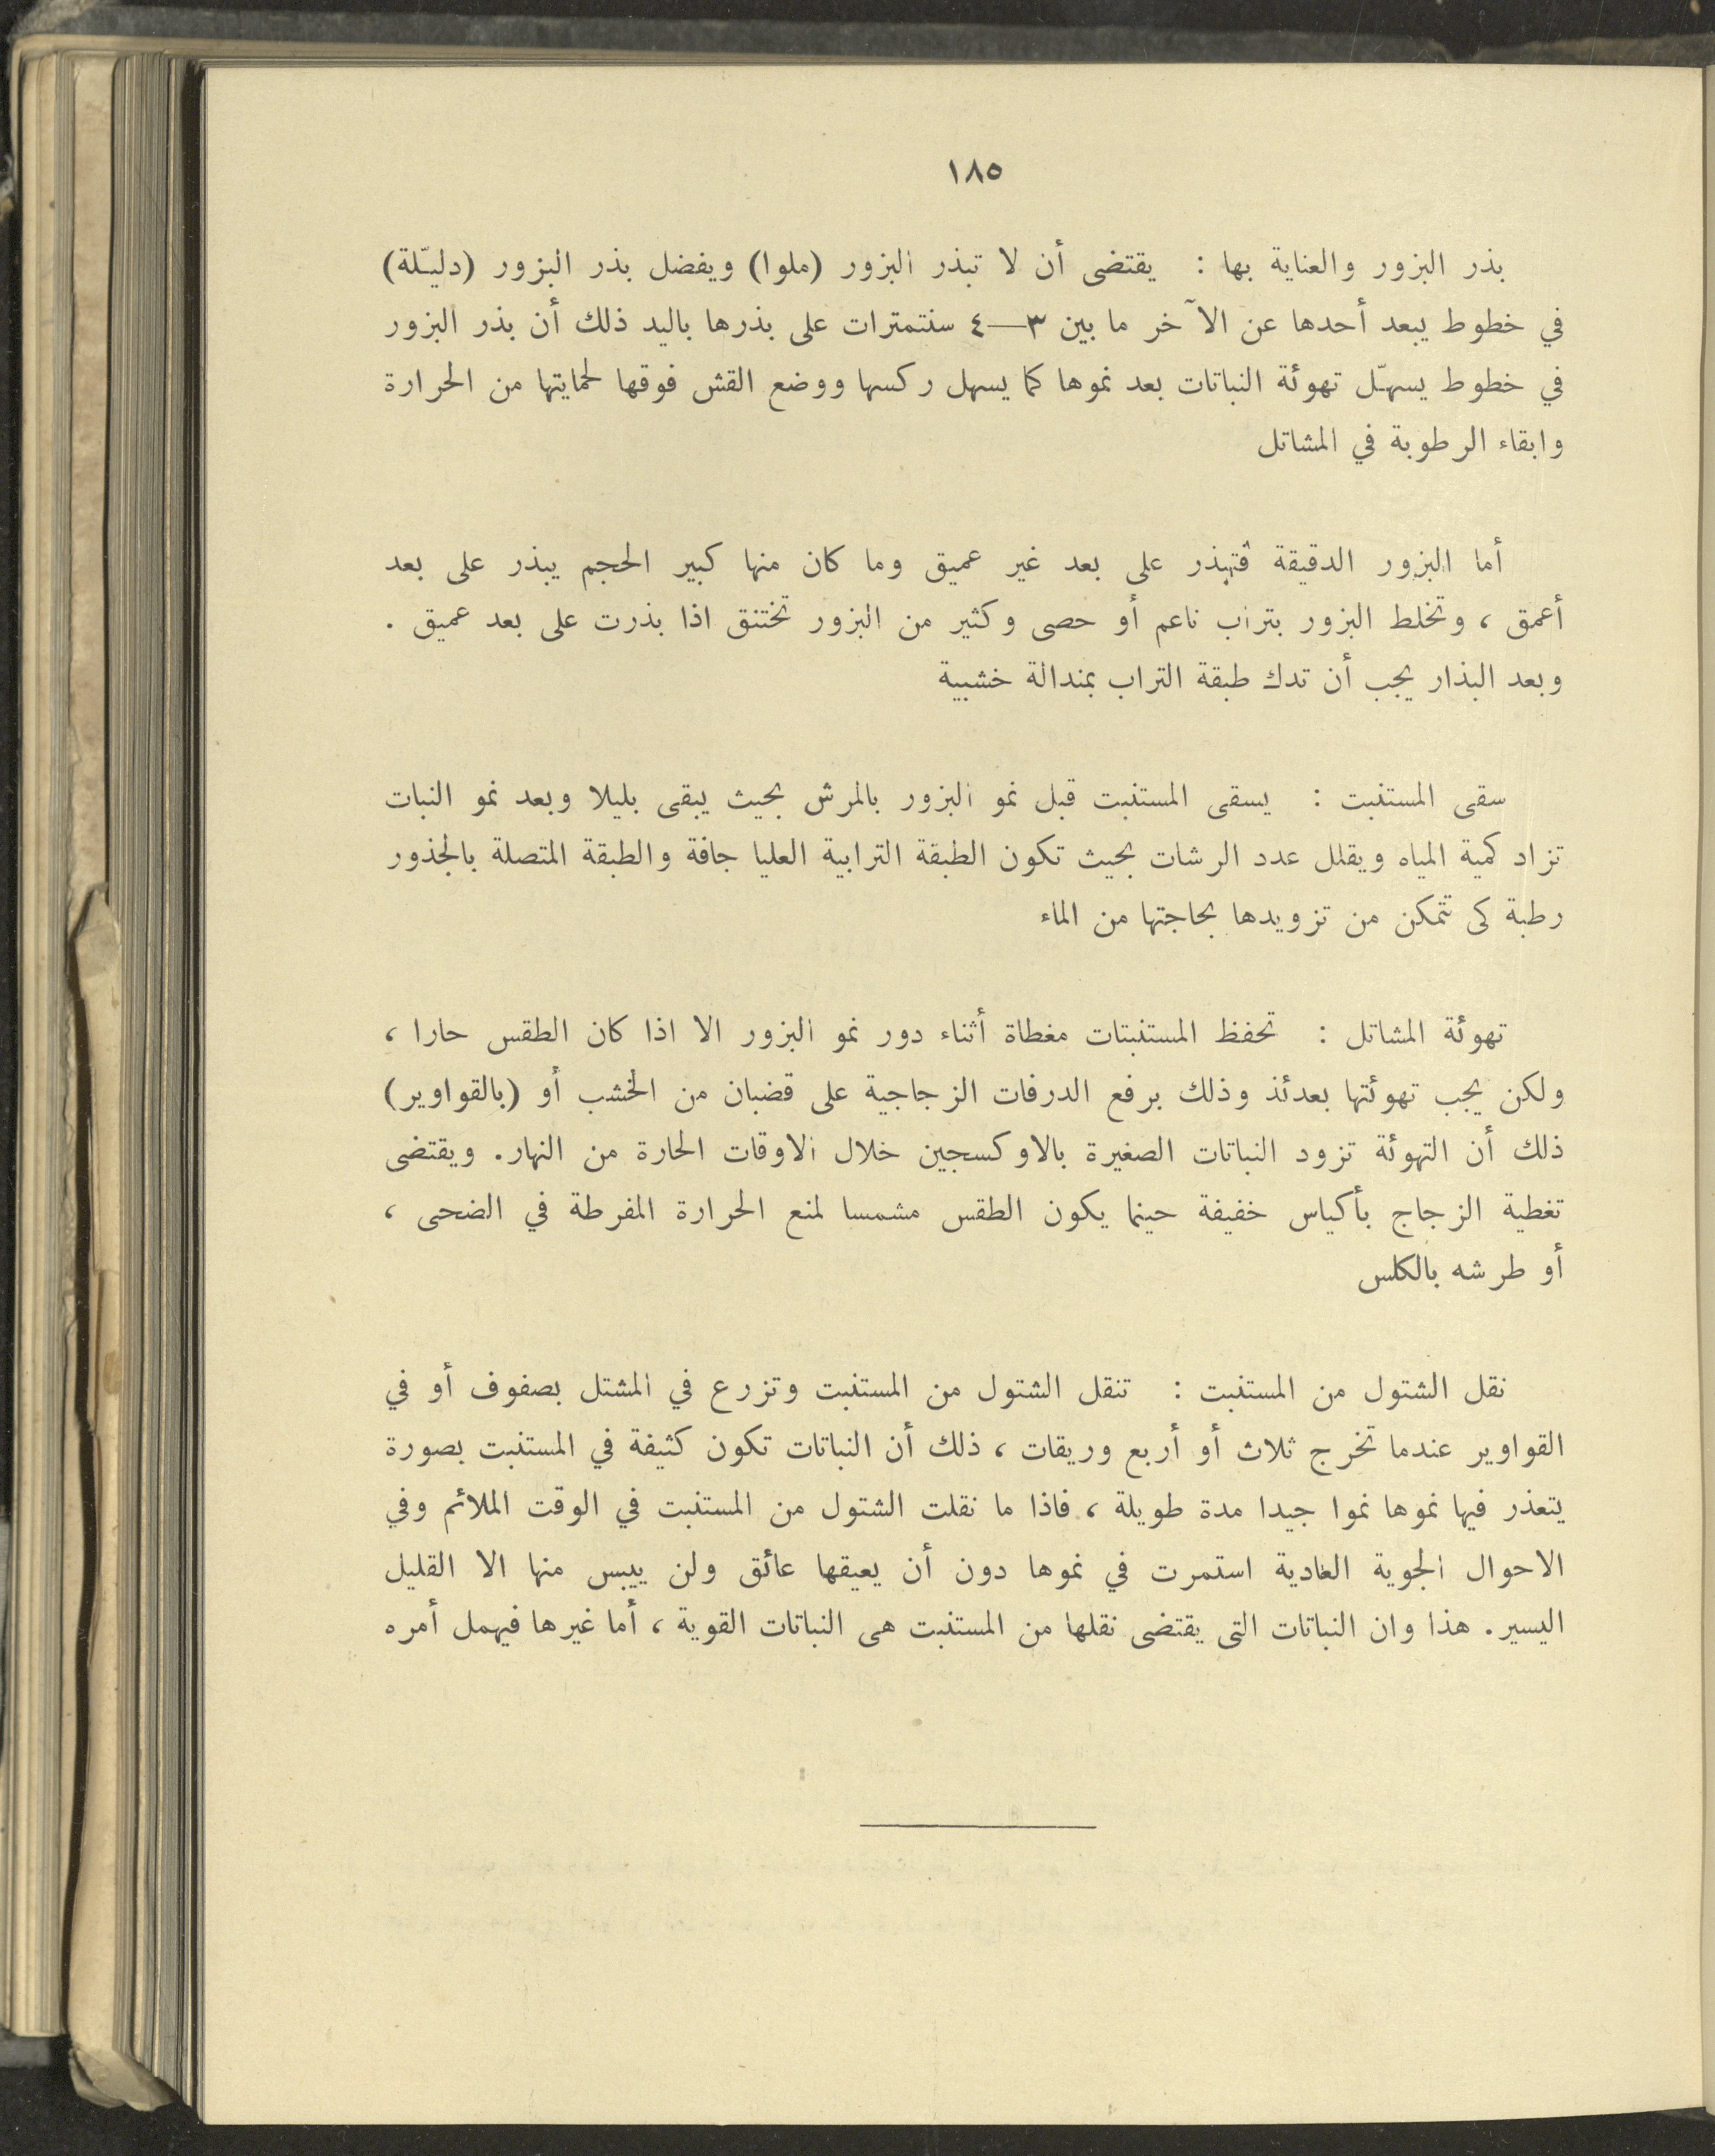 ١٨٥
بذر البزور والعناية بها : يقتضى أن لا تبذر البزور (ملوا) ويفضل بذر البزور (دليّلة)
في خطوط يبعد أحدها عن الآخر ما بين ٣—٤ سنتمترات على بذرها باليد ذلك أن بذر البزور
في خطوط يسهّل تهوئة النباتات بعد نموها كما يسهل ركسها ووضع القش فوقها لحمايتها من الحرارة
وابقاء الرطوبة في المشاتل
أما البزور الدقيقة فتبذر على بعد غير عميق وما كان منها كبير الحجم يبذر على بعد
أعمق ، وتخلط البزور بتراب ناعم أو حصى وكثير من البزور تختنق اذا بذرت على بعد عميق .
وبعد البذار يجب أن تدك طبقة التراب بمندالة خشبية
سقى المستنبت : يسقى المستنبت قبل نمو البزور بالمرش بحيث يبقى بليلا وبعد نمو النبات
تزاد كمية المياه ويقلل عدد الرشات بحيث تكون الطبقة الترابية العليا جافة والطبقة المتصلة بالجذور
رطبة كى تتمكن من تزويدها بحاجتها من الماء
تهوئة المشاتل : تحفظ المستنبتات مغطاة أثناء دور نمو البزور الا اذا كان الطقس حارا ،
ولكن يجب تهوئتها بعدئذ وذلك برفع الدرفات الزجاجية على قضبان من الخشب أو (بالقواوير)
ذلك أن التهوئة تزود النباتات الصغيرة بالاوكسجين خلال الاوقات الحارة من النهار. ويقتضى
تغطية الزجاج بأكياس خفيفة حينما يكون الطقس مشمسا لمنع الحرارة المفرطة في الضحى ،
أو طرشه بالكلس
نقل الشتول من المستنبت : تنقل الشتول من المستنبت وتزرع في المشتل بصفوف أو في
القواوير عندما تخرج ثلاث أو أربع وريقات ، ذلك أن النباتات تكون كثيفة في المستنبت بصورة
يتعذر فيها نموها نموا جيدا مدة طويلة ، فاذا ما نقلت الشتول من المستنبت في الوقت الملائم وفي
الاحوال الجوية العادية استمرت في نموها دون أن يعيقها عائق ولن ييبس منها الا القليل
اليسير. هذا وان النباتات التى يقتضى نقلها من المستنبت هى النباتات القوية ، أما غيرها فيهمل أمره